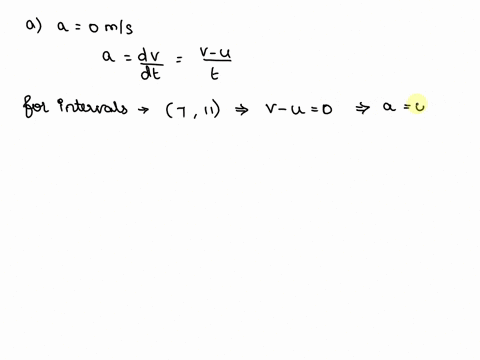 a) a = 0 m/s
a = dv/dt = v-u/t
for intervals → (7, 11) ⇒ v-u = 0 ⇒ a = 0